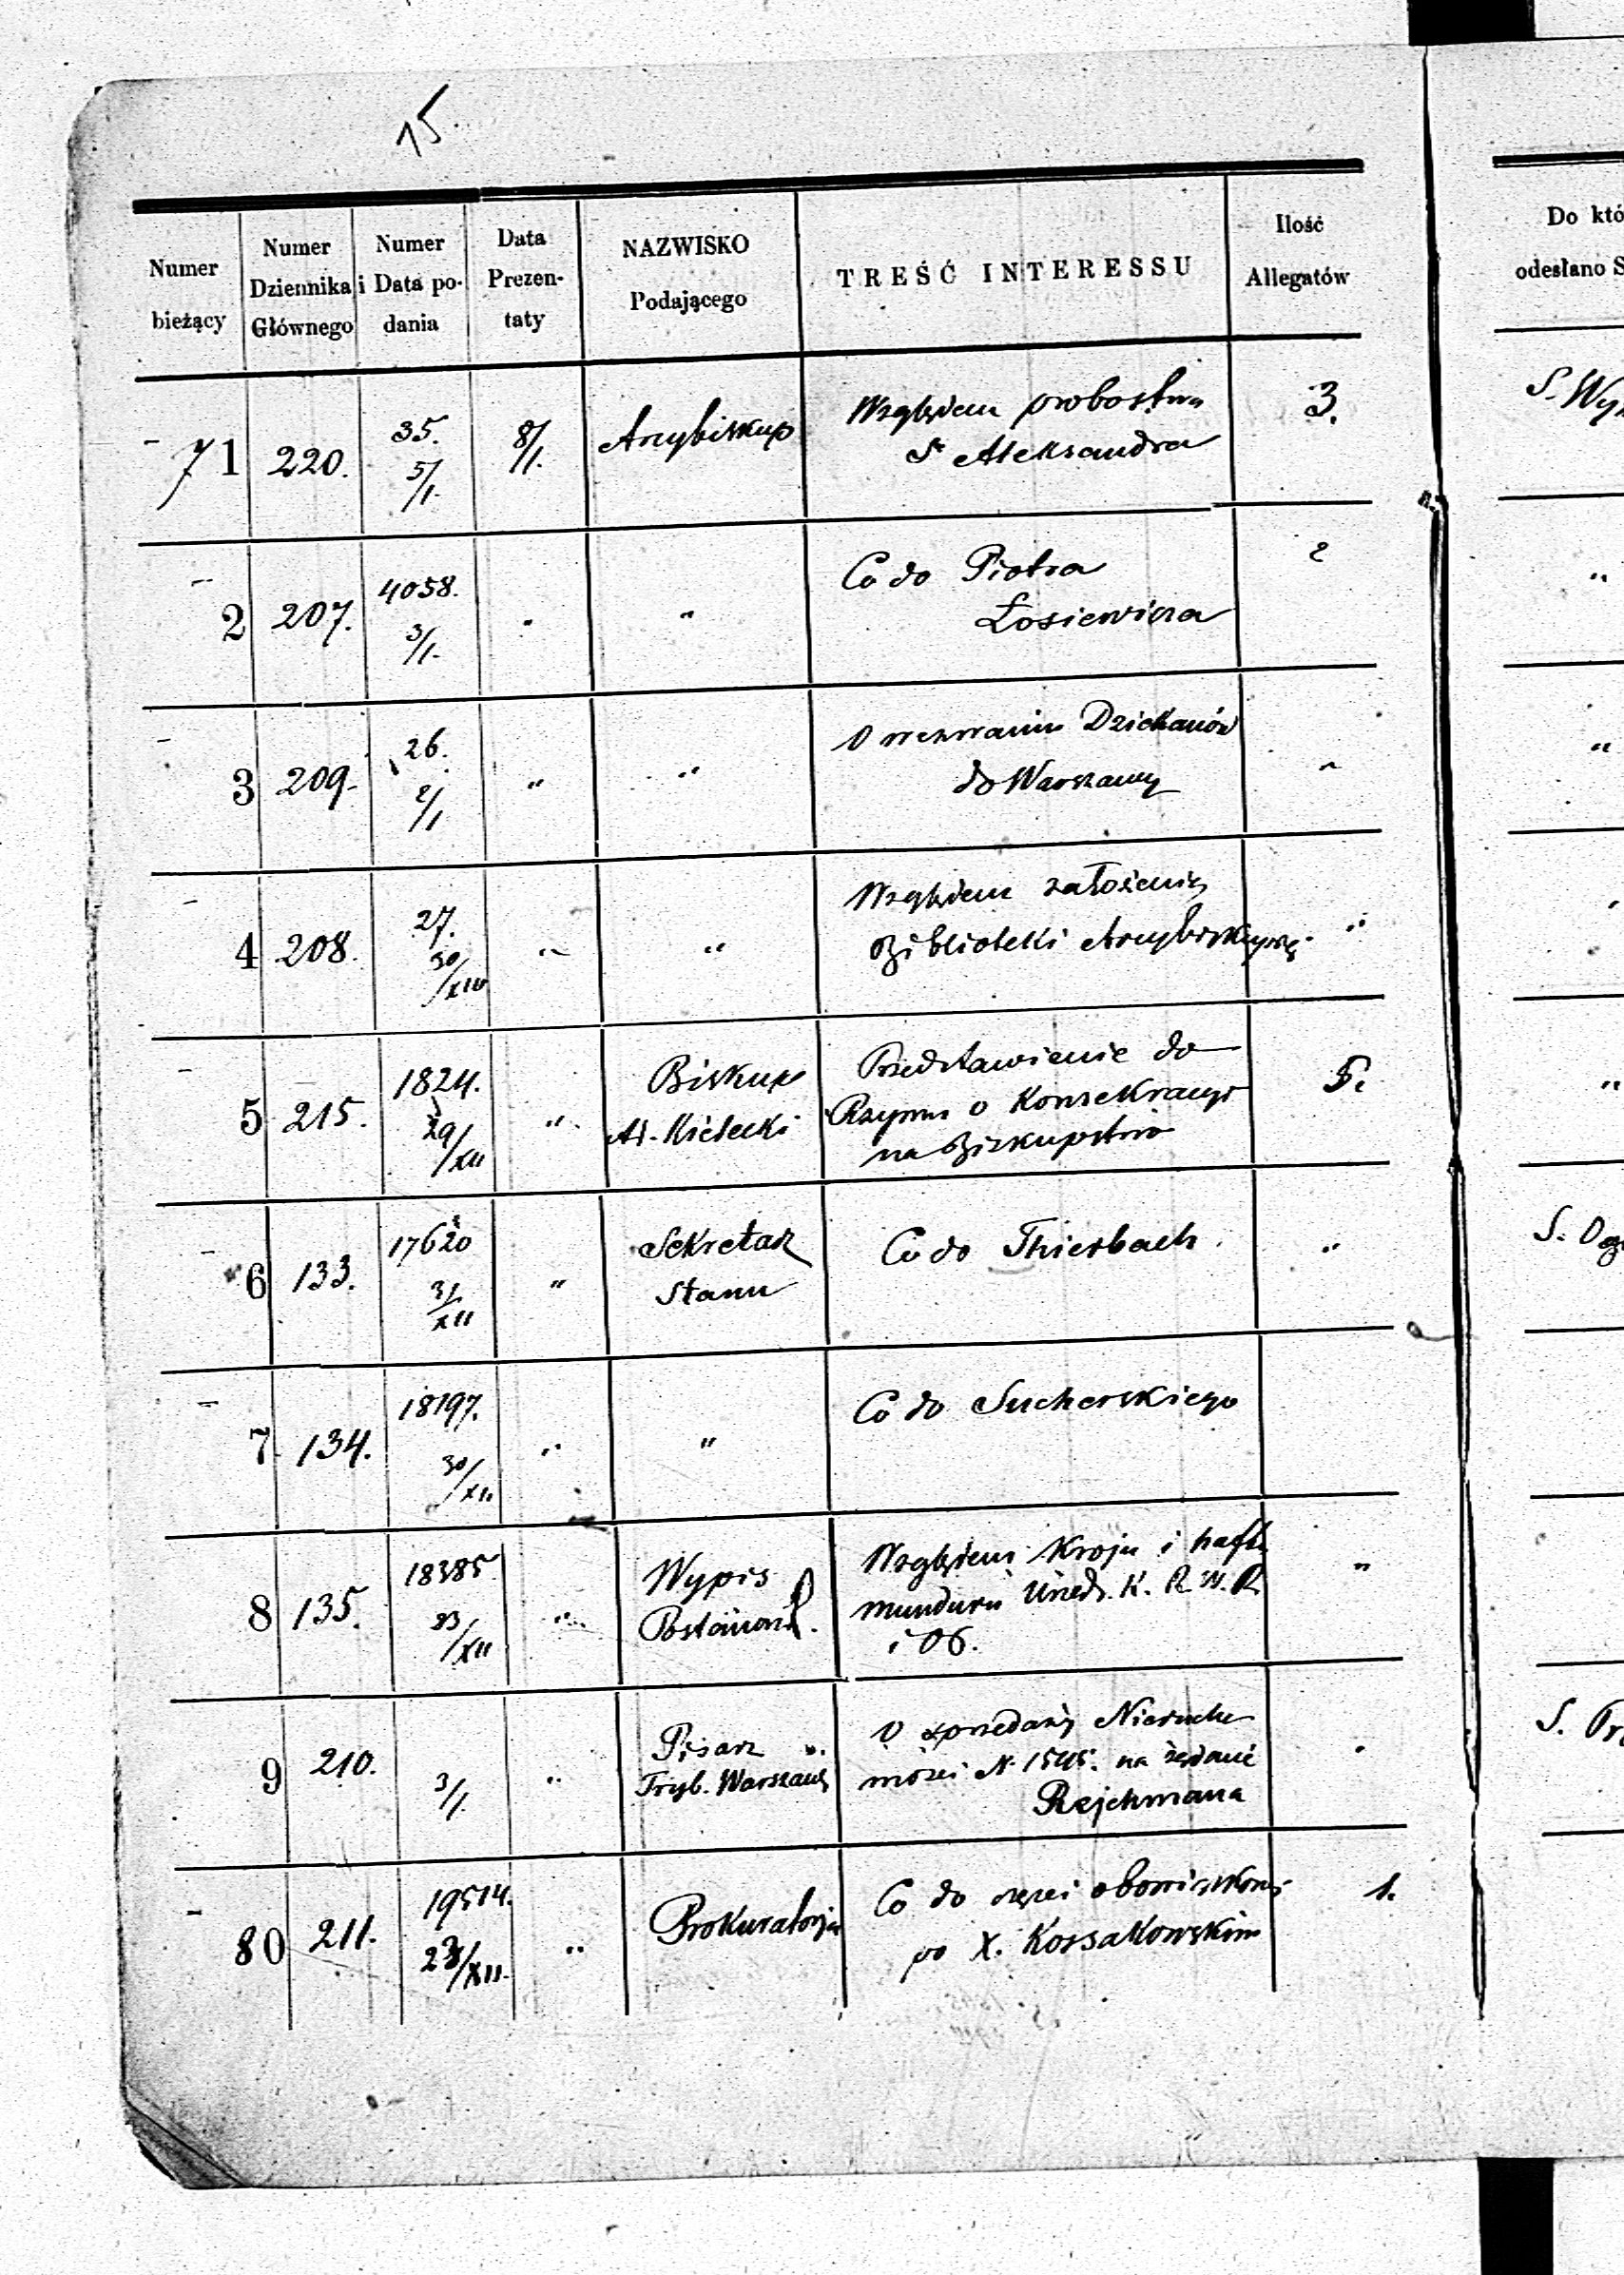 15.
Numer
bieżący
Numer
Dziennika
Głównego
Numer
i Data po-
dania
Data
Prezen-
taty
NAZWISKO
Podającego
TREŚĆ INTERESSU
Ilość
Allegatów
Do któ
odesłano S
71 220. 35. 5/I. 8/I. Arcybiskup Względem probostwa 3. S. Wy
St Aleksandra
2 207. 4058. 3/I. " " Co do Piotra 2 "
Łosiewicza
3 209. 26. 2/I " " O wezwaniu Dziekanów " "
do Warszawy
4 208. 27. 30/XII " " Względem założenia "
Biblioteki Arcybiskupiej
5 215. 1824. 29/XII " Biskup Przedstawienie do 5. "
Al. Kielecki Rzymu o Konsekracyi
na Biskupstwo
6 133. 17620 31/XII " Sekretarz Co do Thierbach " S. Og
Stanu
7 134. 18197. 30/XII " " Co do Sucherskiego
8 135. 18385. 23/XII " Wypis Względem kroju i haftu "
Postanow. munduru Urzed. K. R. W. R.
i O6.
9 210. 3/I. " Pisarz O sprzedaży Nierucho " S. Pr
Tryb. Warszaws mości N. 1545. na żądanie
Rejchmana
80 211. 19514. /XII " Prokuratorja Co do części 1.
po X. Kossakowskim